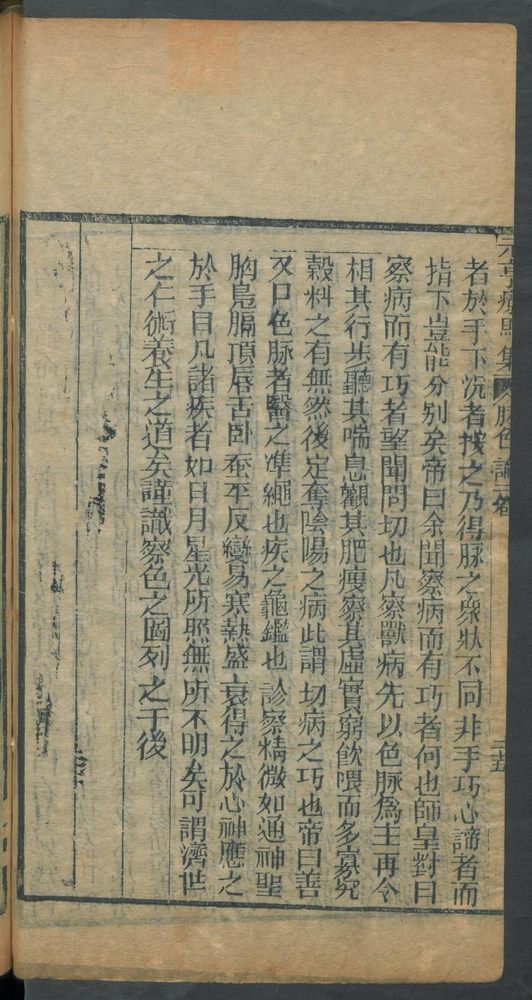 元亨療馬集 脉色論卷 二十五
者於手下沉者按之乃得脉之衆狀不同非手巧心諦者而
指下豈能分别矣帝曰余聞察病而有巧者何也師皇對曰
察病而有巧者朢聞問切也凡察獸病先以色脉爲主再令
相其行步聽其喘息觀其肥瘦察其虛實窮飲喂而多寡究
穀料之有無然後定奪陰陽之病此謂切病之巧也帝曰善
又曰色脉者醫之準繩也疾之龜鑑也診察精微如通神聖
胸鳬膈頂唇舌卧蚕平反變易寒熱盛衰得之於心神應之
於手目凡諸疾者如日月星光所照無所不明矣可謂濟世
之仁術養生之道矣謹識察色之圖列之于後